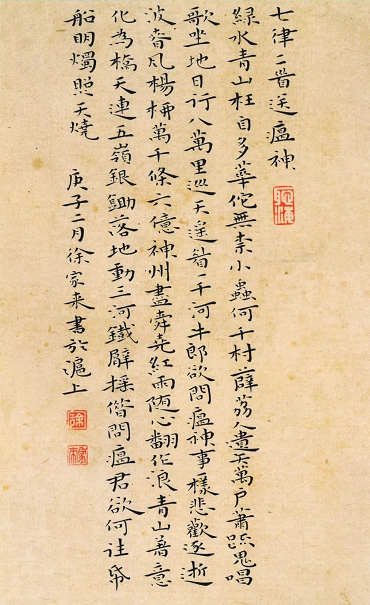 七律二首送瘟神
綠水青山枉自多華佗無奈小蟲何千村薜荔人遺矢萬戶蕭踈鬼唱
歌坐地日行八萬里巡天遥看一千河牛郎欲問瘟神事樣悲歡逐逝
波春風楊桺萬千條六億神州盡舜堯紅雨随心翻作浪青山著意
化為橋天連五嶺銀鋤落地動三河鐵臂搖借問瘟君欲何往帋
船明燭照天燒 庚子二月徐家来書於滬上
徐